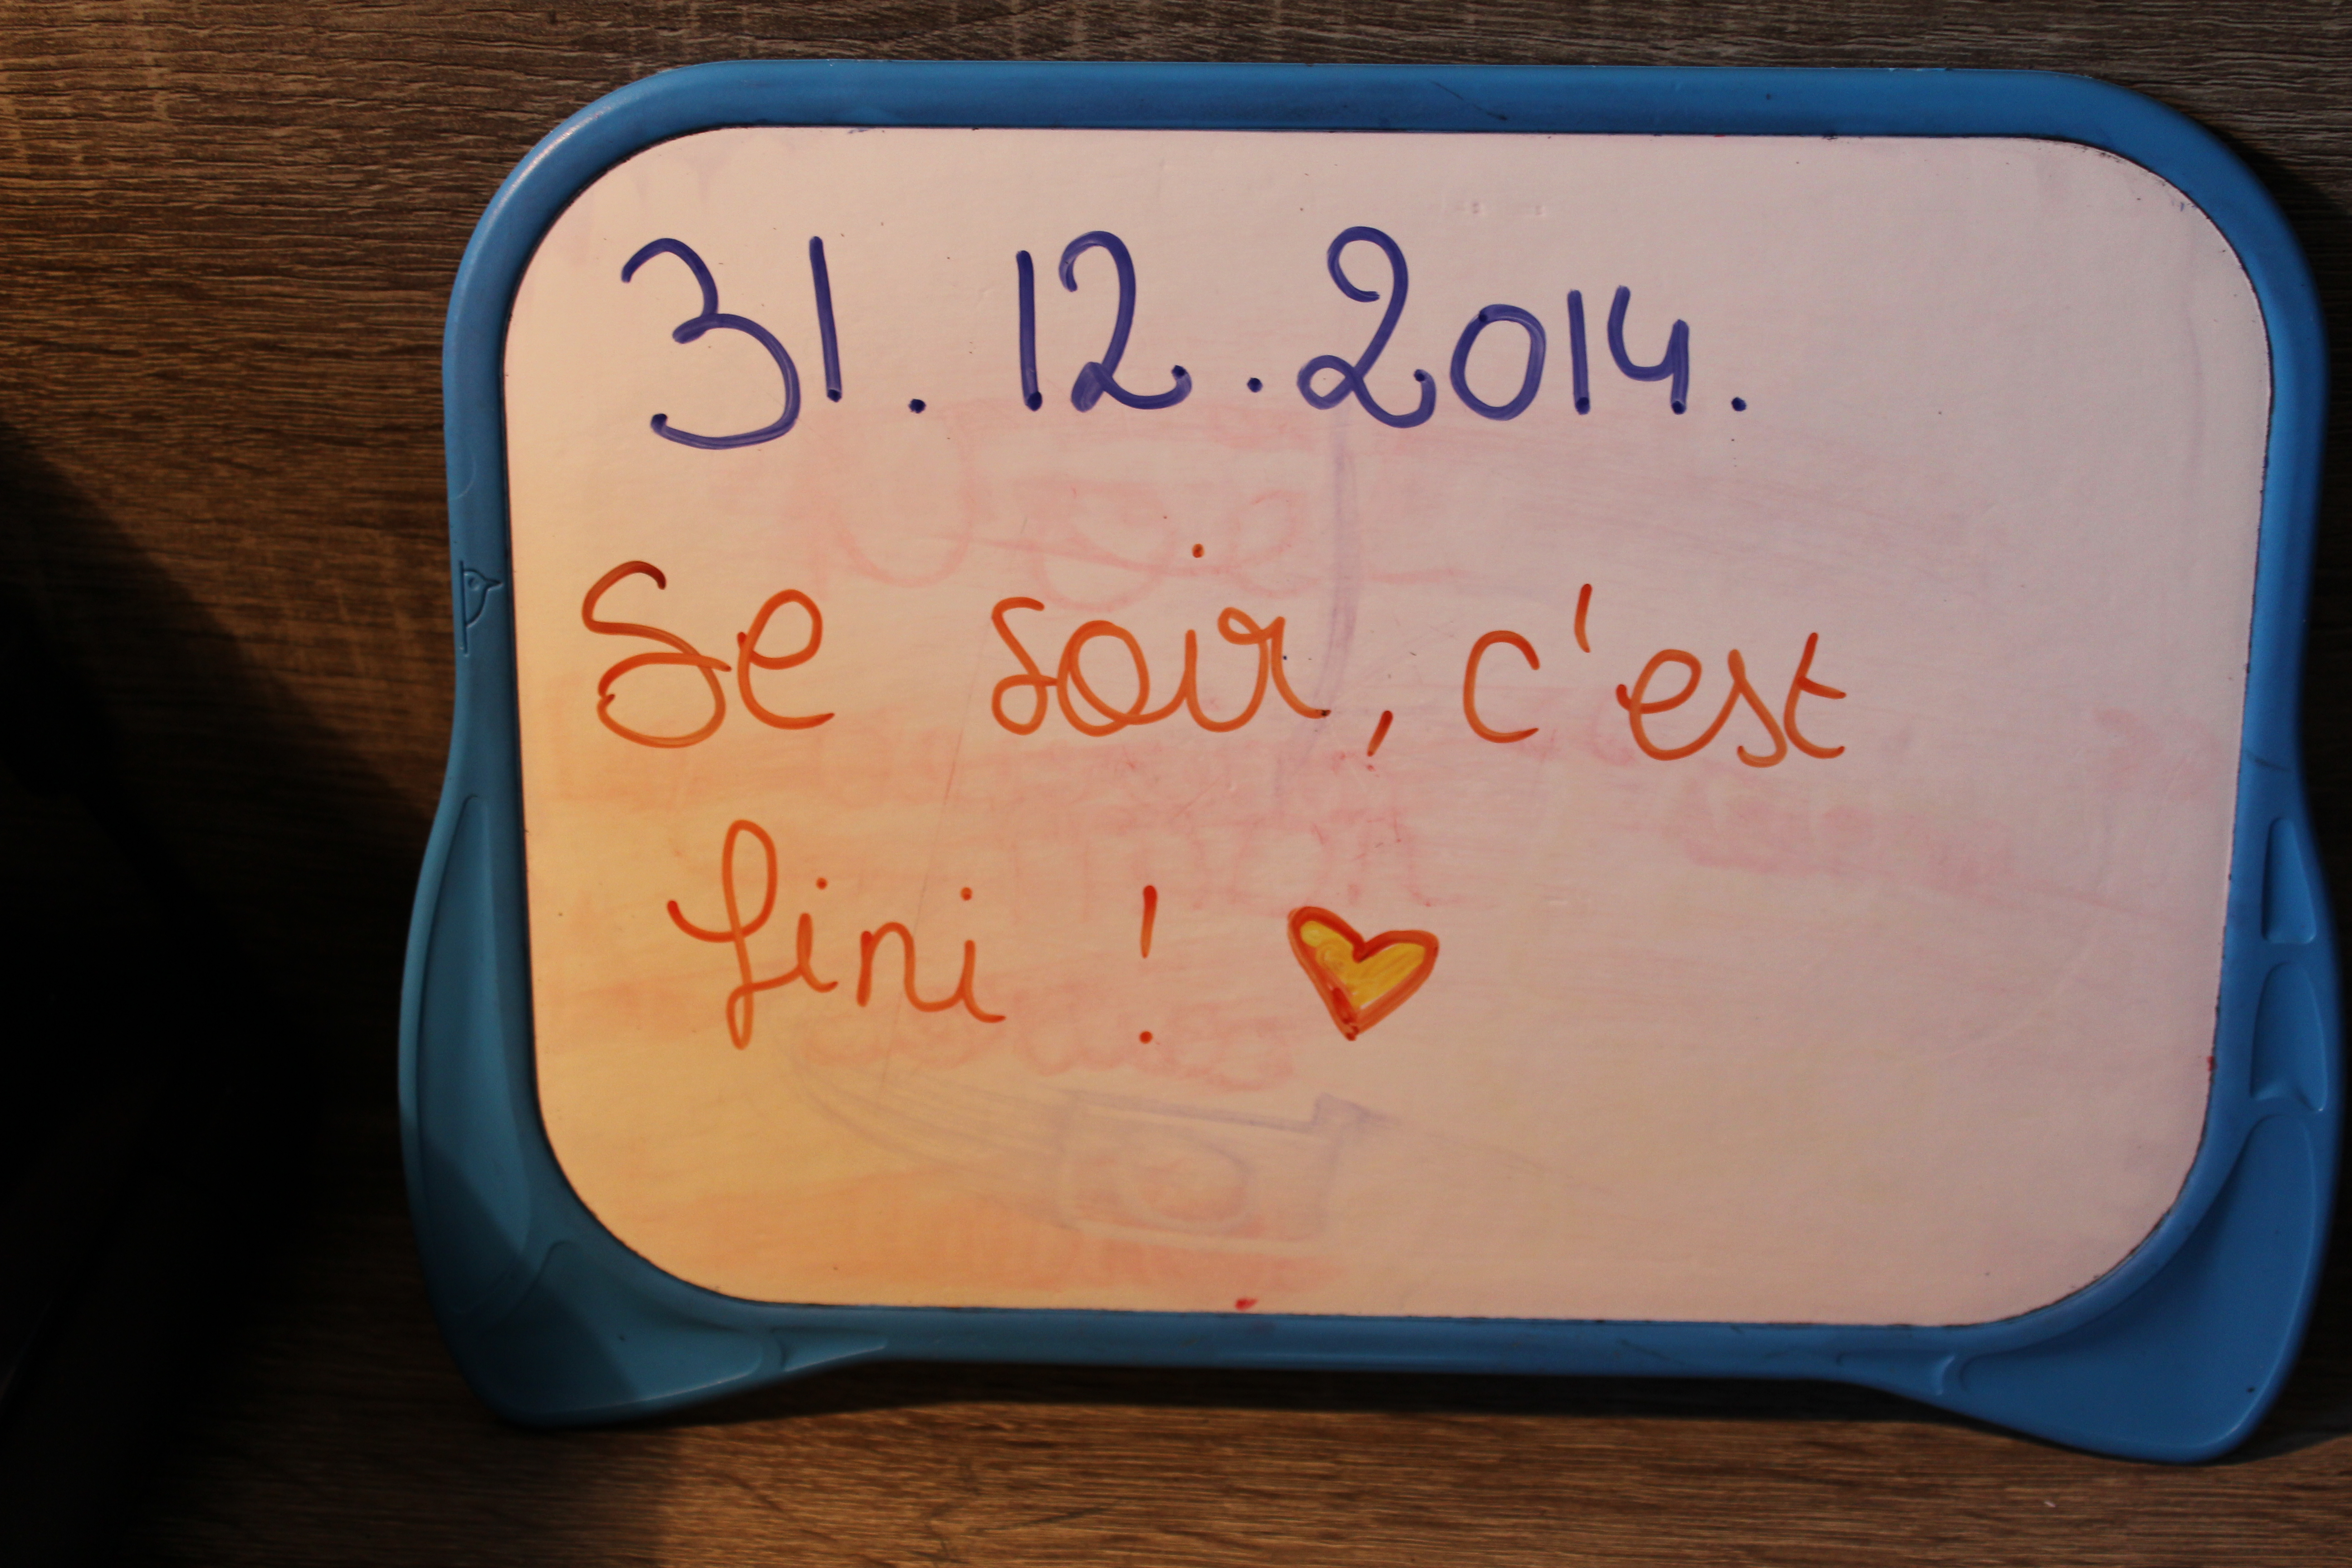 31.12.2014.
Se soir, c'est
fini !